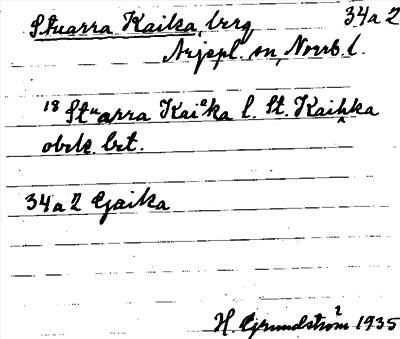 Stuarra Kaika, berg 34a2
Arjepl. sn, Norrb. l.
18 Stuarra Kaiᵉka l. St. Kaihka
obek. brt.
34a2 Gaika
H. Grundström 1935